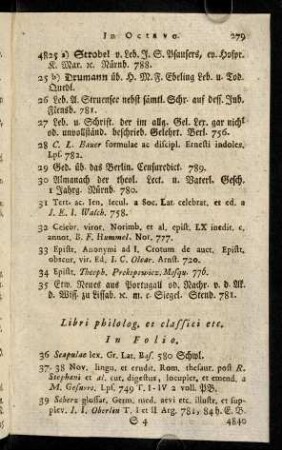 In Octavo.
279
4825 a) Strobel v. Leb. J. S. Psausers, ev. Hofpr.
K. Mar. ꝛc. Nürnb. 788.
25 b) Drumann üb. H. M. F. Ebeling Leb. u. Tod.
Quedl.
26 Leb. A. Struensee nebst sämtl. Schr. auf dess. Inh.
Flensb. 781.
27 Leb. u. Schrift. der im allg. Gel. Lex. gar nicht
od. unvollständ. beschrieb. Gelehrt. Berl. 756.
28 C. L. Bauer formulae ac discipl. Ernesti indoles,
Lps. 782.
29 Ged. üb das Berlin. Censuredict. 789.
30 Almanach der theol. Lect. u. Vaterl. Gesch.
1 Jahrg. Nürnb. 780.
31 Tert. ac. Ien. secul. a soc. Lat. celebrat, et ed. a
J. E. I. Walch. 758.
32 Celebr. viror. Norimb, et al. epist. LX inedit. c.
annot. B. F. Hummel. Nor. 777.
33 Epistt. Anonymi ad I. Crotum de auct. Epistt.
obscur. vir. Ed, I. C. Olear. Arnst. 720.
34 Epistt. Theoph. Prokopowicz. Mosqu. 776.
35 Erw. Neues aus Portugall od. Nachr. v. d. Ak.
d. Wiss. zu Lissab. ꝛc. m. c. Siegel. Stend. 781.
Libri philolog. et classici etc.
In Folio.
36 Scapulae lex. Gr. Lat. Bas. 580 Schwl.
37-38 Nov. lingu. et erudit. Rom. thesaur. post R.
Stephani et al. cur, digestus, locuplet. et emend. a
M. Gesnero. Lps. 749 T. I-IV 2 voll. PB.
39 Scherz glossar. Germ. med. aevi etc. illustr. et sup-
plev. I. I. Oberlin T. I et II Arg. 781, 84 h. E. B.
S 4
4840